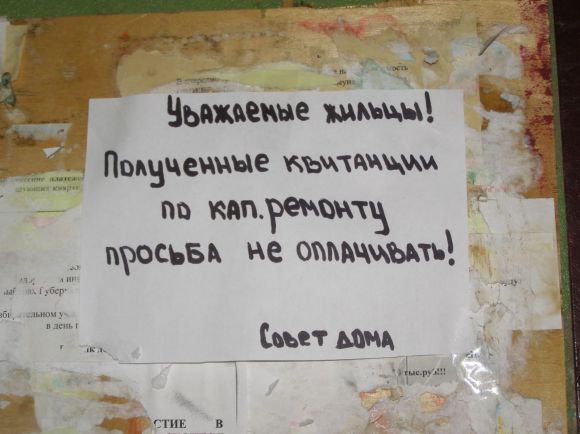 Уважаемые жильцы!
Полученные квитанции
по кап. ремонту
просьба не оплачивать!
Совет дома
в день
тыс.руб!!!
СТИЕ В